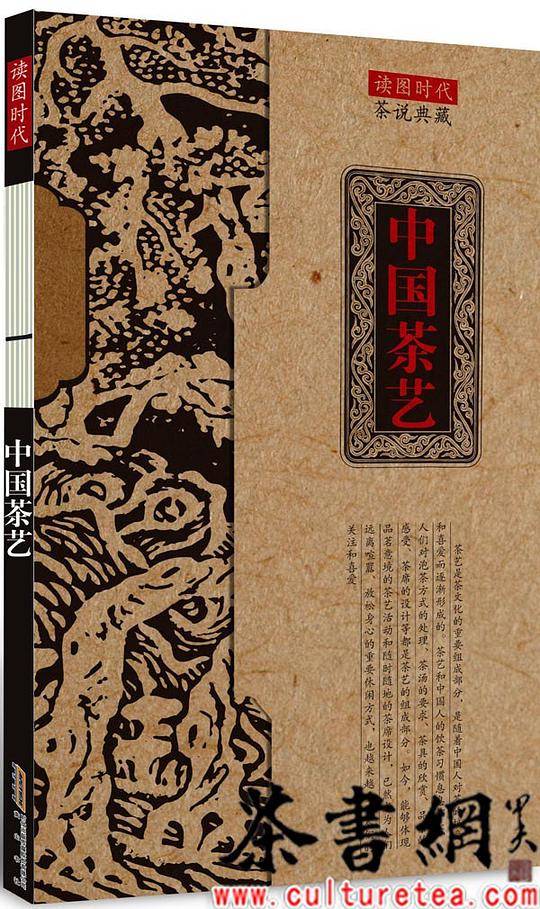 读图时代
中国茶艺
读图时代
茶说典藏
中国茶艺
茶艺是茶文化的重要组成部分，是随着中国人对茶
和喜爱而逐渐形成的。茶艺和中国人的饮茶习惯息
人们对泡茶方式的处理、茶汤的要求、茶具的欣赏、品
感受、茶席的设计等都是茶艺的组成部分。如今，能够体现
品茗意境的茶艺活动和随时随地的茶席设计，已然 为人们
远离喧嚣、放松身心的重要休闲方式，也越来越
关注和喜爱。
茶書網
www.culturetea.com